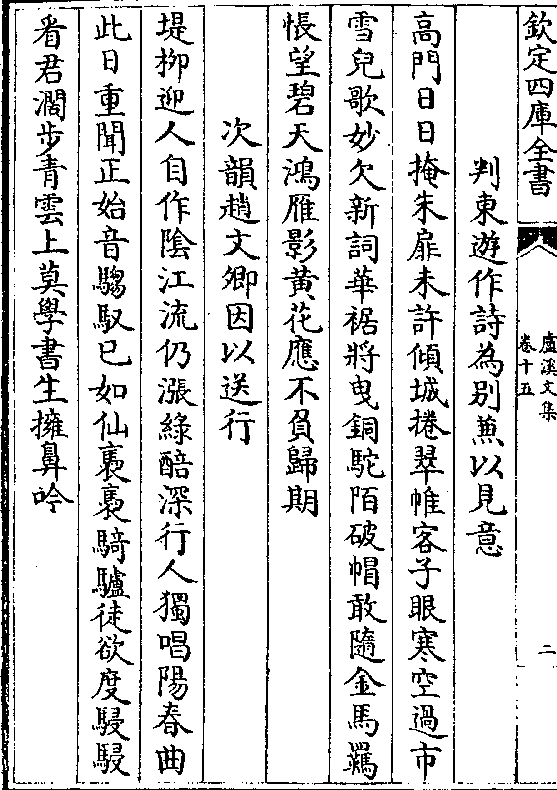 欽定四庫全書
盧溪文集
卷十五
二
判東遊作詩為別兼以見意
高門日日掩朱扉未許傾城捲翠帷客子眼寒空過市
雪兒歌妙欠新詞華裾將曳銅駝陌破帽敢隨金馬羈
悵望碧天鴻雁影黄花應不負歸期
次韻趙文卿因以送行
堤栁迎人自作陰江流仍漲綠醅深行人獨唱陽春曲
此日重聞正始音騶馭已如仙裊裊騎驢徒欲度駸駸
看君濶步青雲上莫學書生擁鼻吟